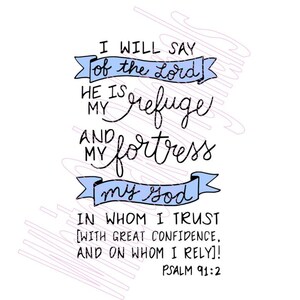 I WILL SAY
of the Lord,
HE IS
MY refuge
AND
MY fortress
my God
IN WHOM I TRUST
[WITH GREAT CONFIDENCE,
AND ON WHOM I RELY]!
PSALM 91:2